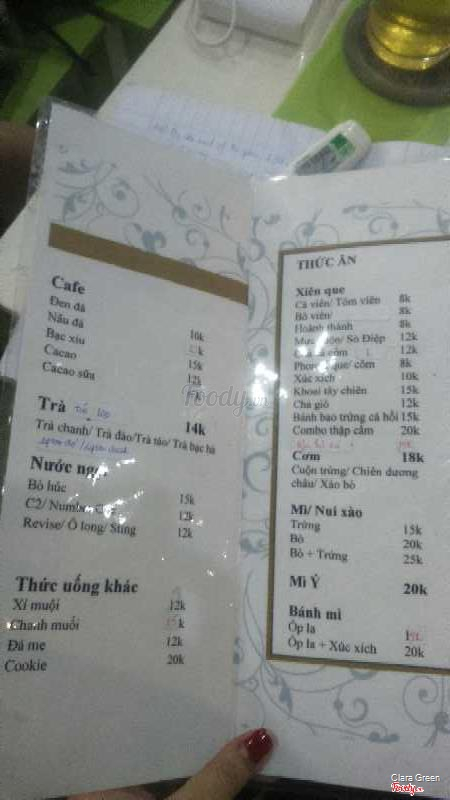 Cafe
Đen đá
Nâu đá 10k
Bạc xỉu k
Cacao 15k
Cacao sữa 12k
Trà 14k
Trà chanh/ Trà đào/ Trà táo/ Trà bạc hà
Nước
Bò húc 15k
C2/ 12k
Revise/ Ô long/ Sting 12k
Thức uống khác
Xí muội 12k
Chanh muối k
Đá me 12k
Cookie 20k
THỨC ĂN
Xiên que
Cá viên/ Tôm viên 8k
Bò viên/ 8k
Hoành thánh 8k
Sò Điệp 12k
cốm 12k
que/ cốm 8k
Xúc xích 10k
Khoai tây chiên 15k
Chả giò 12k
Bánh bao trứng cá hồi 15k
Combo thập cẩm 20k
Cơm 18k
Cuộn trứng/ Chiên dương
châu/ Xào bò
Mì/ Nui xào
Trứng 15k
Bò 20k
Bò + Trứng 25k
Mì Ý 20k
Bánh mì
Ốp la
Ốp la + Xúc xích 20k
Foody.vn
Clara Green
Foody.vn